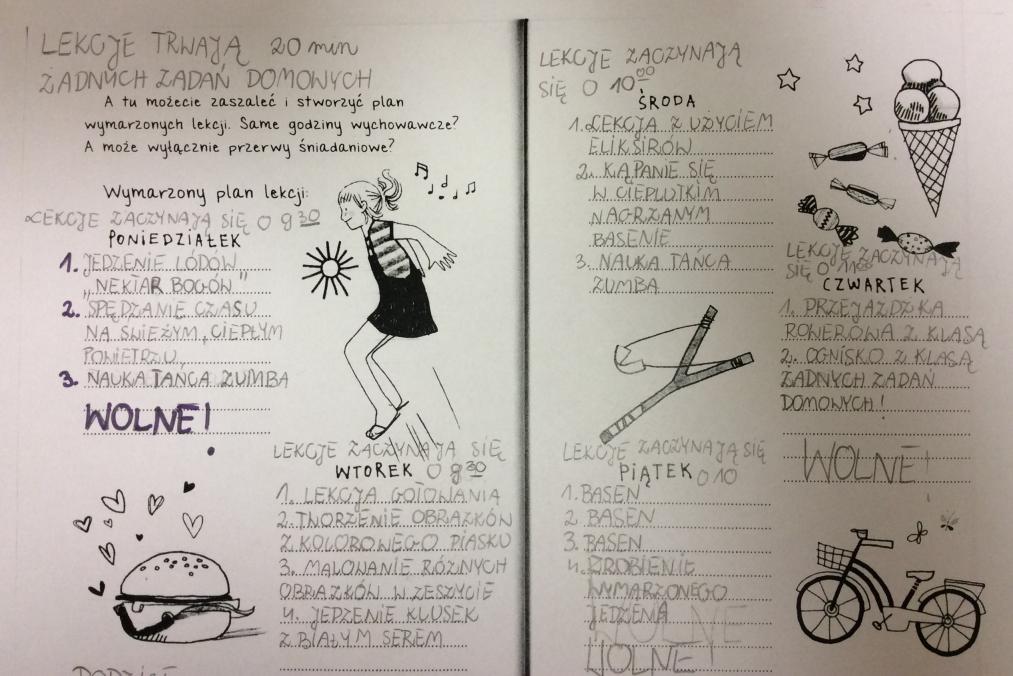 LEKCJE TRWAJĄ 20 min
ŻADNYCH ZADAŃ DOMOWYCH
A tu możecie zaszaleć i stworzyć plan
wymarzonych lekcji. Same godziny wychowawcze?
A może wyłącznie przerwy śniadaniowe?
Wymarzony plan lekcji:
LEKCJE ZACZYNAJĄ SIĘ O 9 30
PONIEDZIAŁEK
1. JEDZENIE LODÓW
„NEKTAR BOGÓW"
2. SPĘDZANIE CZASU
NA ŚWIEŻYM, CIEPŁYM
POWIETRZU
3. NAUKA TAŃCA ZUMBA
WOLNE!
LEKCJE ZACZYNAJĄ SIĘ
WTOREK O 9 30
1. LEKCJA GOTOWANIA
2. TWORZENIE OBRAZKÓW
Z KOLOROWEGO PIASKU
3. MALOWANIE RÓŻNYCH
OBRAZKÓW W ZESZYCIE
4. JEDZENIE KLUSEK
Z BIAŁYM SEREM
LEKCJE ZACZYNAJĄ
SIĘ O 10 00
ŚRODA
1. LEKCJA Z UŻYCIEM
ELIKSIRÓW
2. KĄPANIE SIĘ
W CIEPLUTKIM
NAGRZANYM
BASENIE
3. NAUKA TAŃCA
ZUMBA
LEKCJE ZACZYNAJĄ
SIĘ O 11 00
CZWARTEK
1. PRZEJAŻDŻKA
ROWEROWA Z KLASĄ
2. OGNISKO Z KLASĄ
ŻADNYCH ZADAŃ
DOMOWYCH!
WOLNE!
LEKCJE ZACZYNAJĄ SIĘ
PIĄTEK O 10
1. BASEN
2. BASEN
3. BASEN
4. ZROBIENIE
WYMARZONEGO
JEDZENIA
WOLNE
WOLNE!